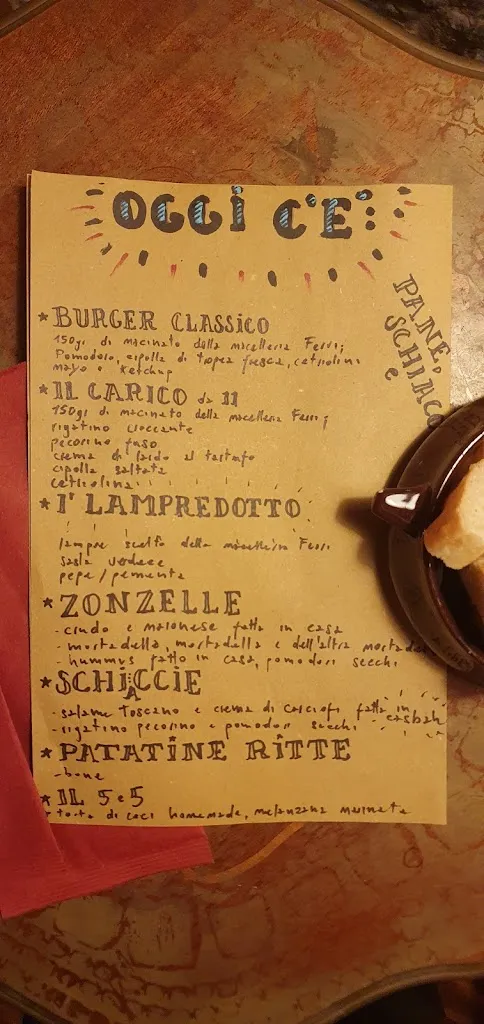 OGGI C'E':
PANE,
SCHIAC
e
* BURGER CLASSICO
150gr di macinato della macelleria Ferri;
Pomodoro, cipolla di tropea fresca, cetriolini
mayo e ketchup
* IL CARICO da 11
150gr di macinato della macelleria Ferri;
rigatino croccante
pecorino fuso
crema di lardo al tartufo
cipolla saltata
cetriolina
* I' LAMPREDOTTO
lampre scelto della macelleria Ferri
salsa verdece
pepe/pementa
* ZONZELLE
- crudo e maionese fatta in casa
- mortadella, mortadella e dell'altra mortadel
- hummus fatto in casa, pomodori secchi
* SCHIACCIE
- salame Toscano e crema di carciofi fatta in casbah
- rigatino pecorino e pomodori secchi
* PATATINE RITTE
- bone
* IL 5 e 5
torta di ceci homemade, melanzana marinata